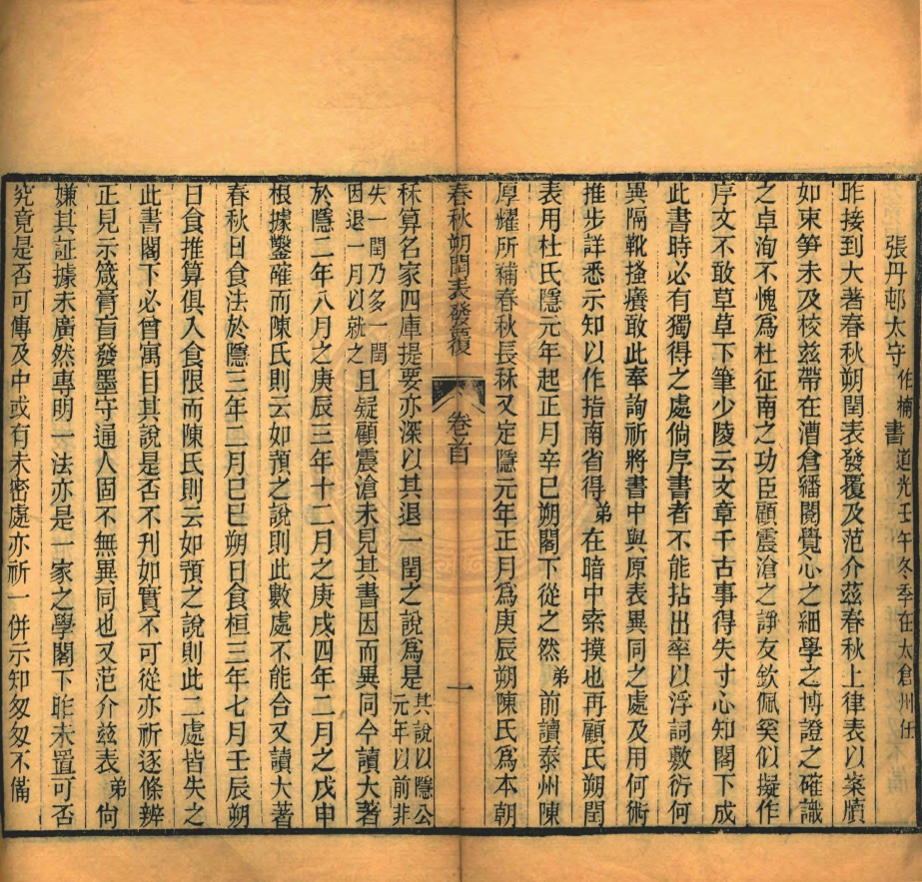 張丹邨太守作楠書道光壬午冬季在太倉州任
昨接到大著春秋朔閏表發覆及范介茲春秋上律表以案牘
如束笋未及核茲帶在漕倉繙閱覺心之細學之博證之確識
之卓洵不愧爲杜征南之功臣顧震滄之諍友欽佩奚似擬作
序文不敢草草下筆少陵云文章千古事得失寸心知閣下成
此書時必有獨得之處倘序書者不能拈出率以浮詞敷衍何
異隔靴搔癢敢此奉詢祈將書中與原表異同之處及用何術
推步詳悉示知以作指南省得弟在暗中索摸也再顧氏朔閏
表用杜氏隱元年起正月辛巳朔閣下從之然弟前讀泰州陳
厚耀所補春秋長秝又定隱元年正月爲庚辰朔陳氏爲本朝
春秋朔閏表發覆 卷首 一
秝算名家四庫提要亦深以其退一閏之說爲是其說以隱公元年以前非
失一閏乃多一閏因退一月以就之且疑顧震滄未見其書因而異同今讀大著
於隱二年八月之庚辰三年十二月之庚戌四年二月之戊申
根據鑿確而陳氏則云如預之說則此數處不能合又讀大著
春秋日食法於隱三年二月己巳朔日食桓三年七月壬辰朔
日食推算俱入食限而陳氏則云如預之說則此二處皆失之
此書閣下必曾寓目其說是否不刊如實不可從亦祈逐條辨
正見示箴膏肓發墨守通人固不無異同也又范介茲表弟尙
嫌其証據未廣然專明一法亦是一家之學閣下昨未置可否
究竟是否可傳及中或有未密處亦祈一併示知匆匆不備